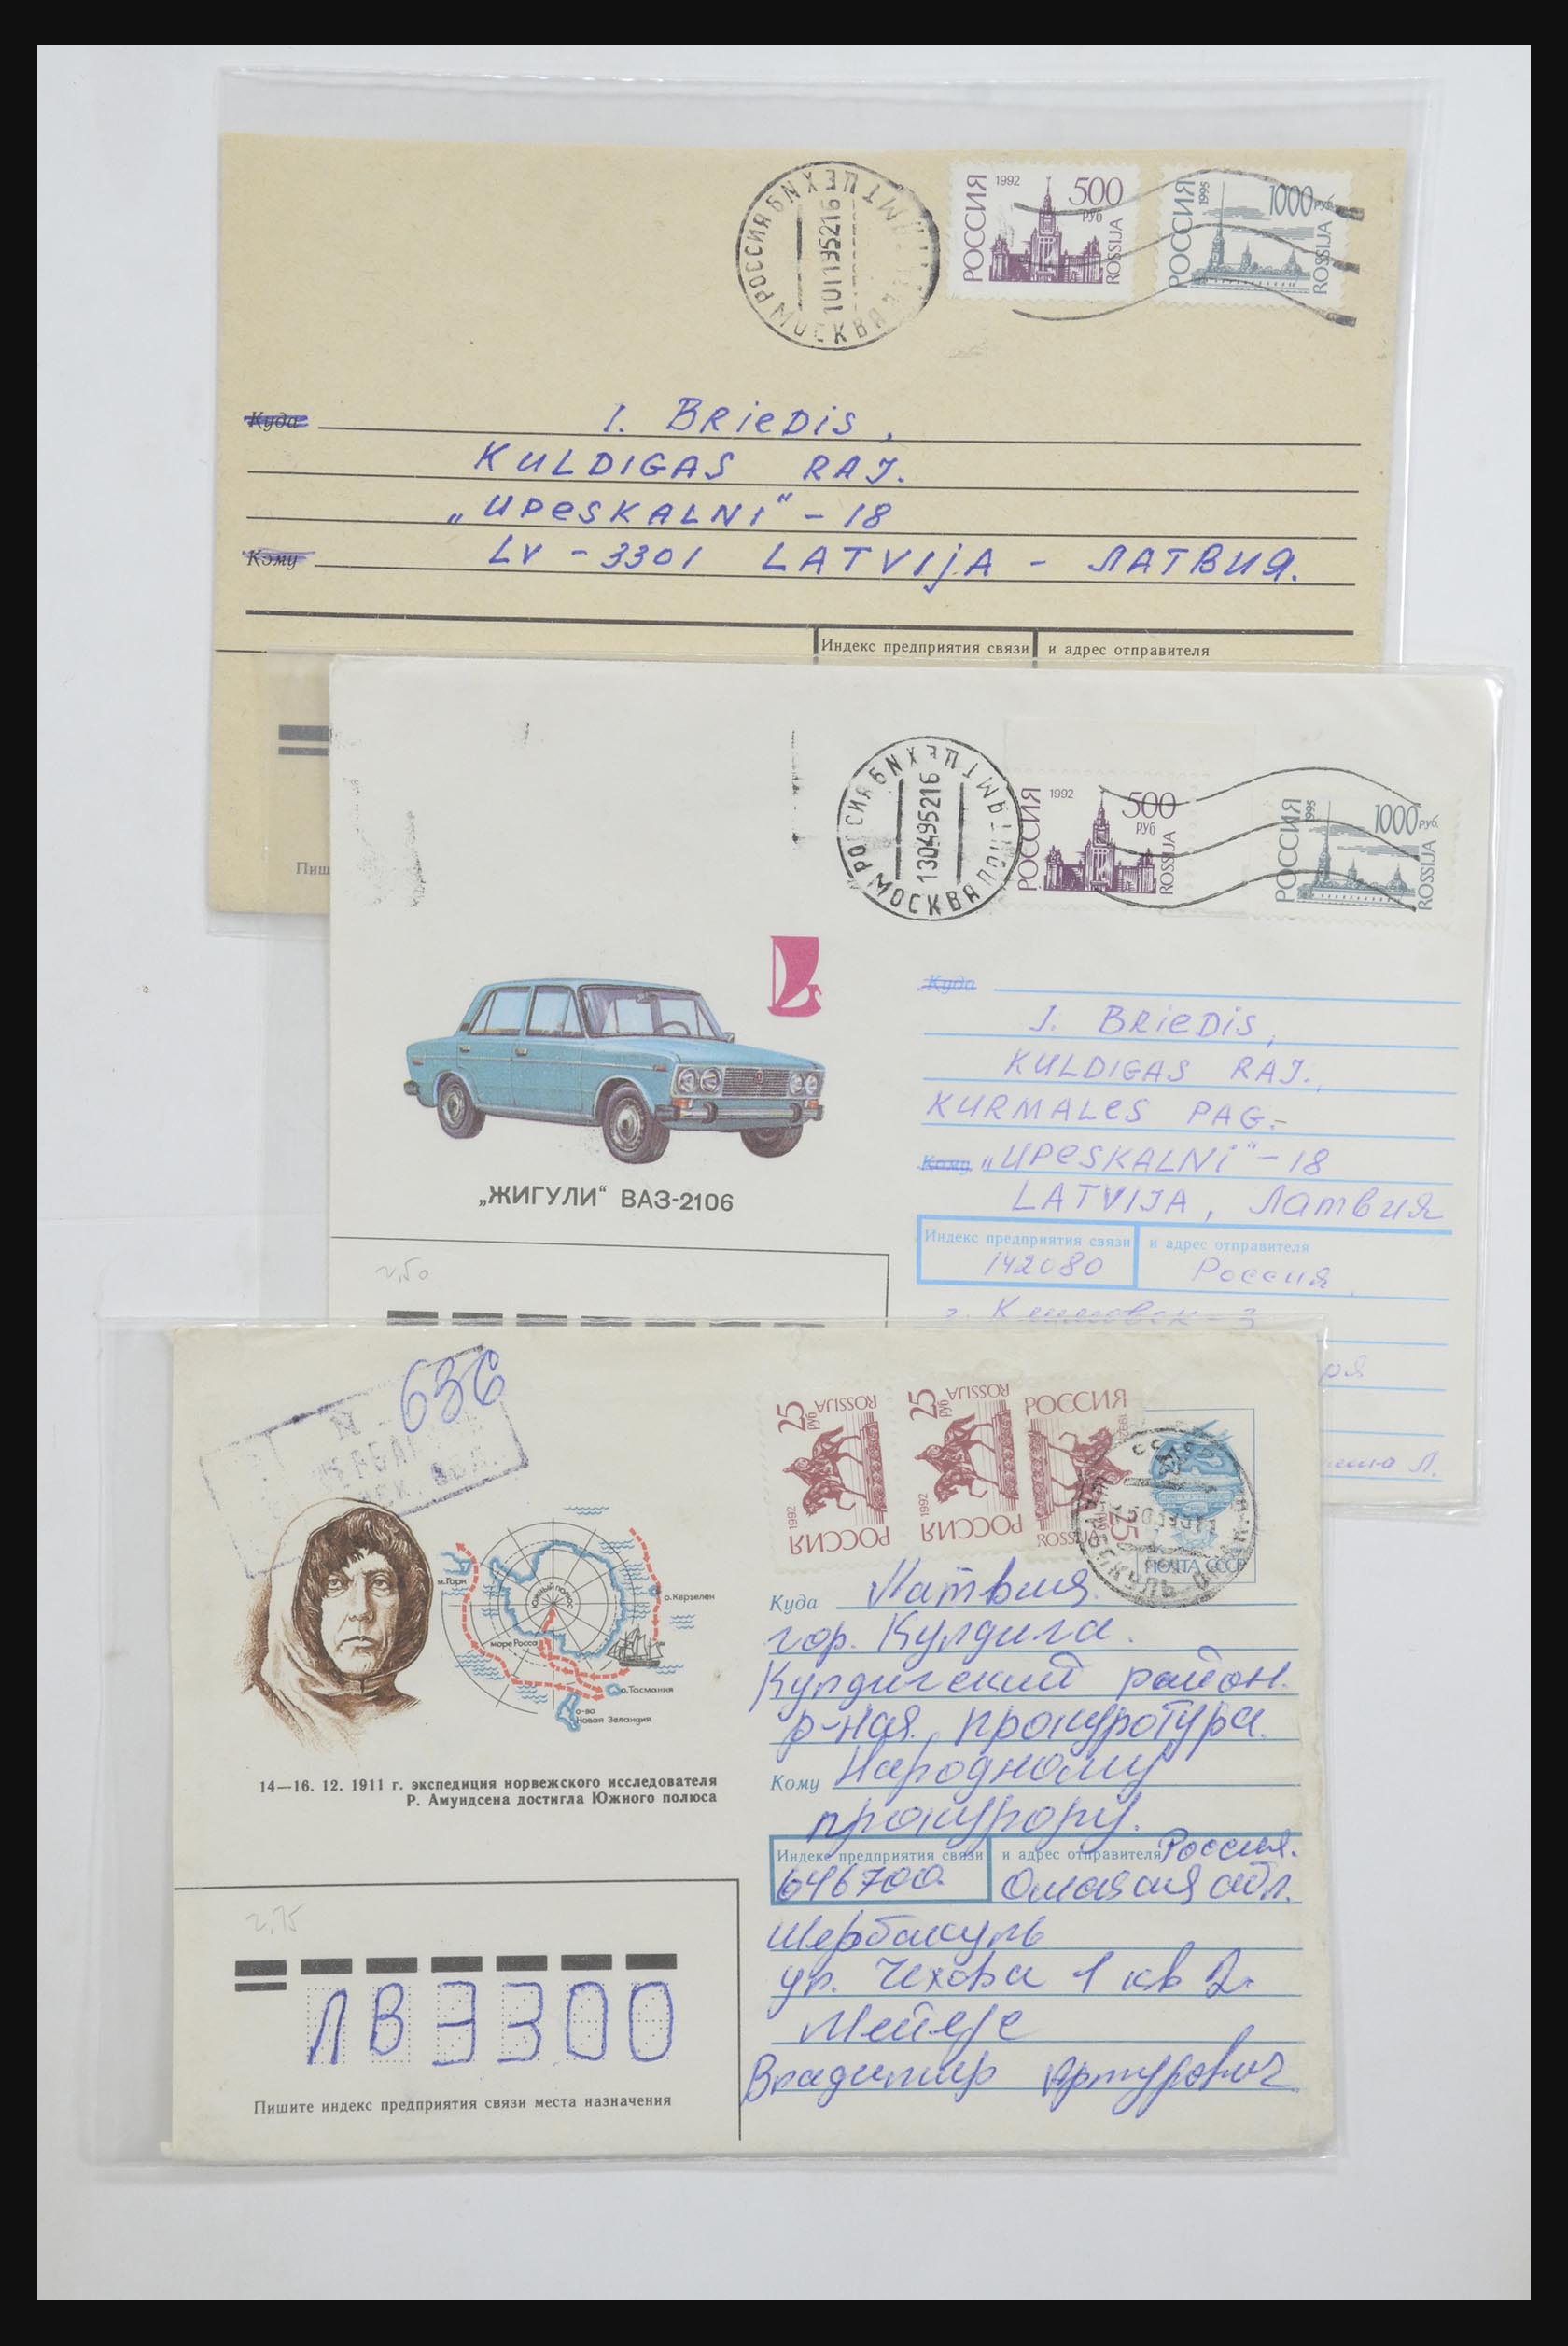 РОССИЯ
1992
500
РУБ
ROSSIJA
РОССИЯ
1995
1000 РУБ.
ROSSIJA
МОСКВА
РОССИЯ
101195216
Куда I. BRIEDIS,
KULDIGAS RAJ.
„UPESKALNI“ - 18
Кому LV - 3301 LATVIJA - ЛАТВИЯ.
Индекс предприятия связи и адрес отправителя
Пиш
РОССИЯ
МОСКВА
130495216
РОССИЯ
1992
500
РУБ
ROSSIJA
РОССИЯ
1995
1000 РУБ.
ROSSIJA
„ЖИГУЛИ“ ВАЗ-2106
2,50
Куда
J. BRIEDIS,
KULDIGAS RAJ.,
KURMALES PAG.-
Кому „UPESKALNI“-18
LATVIJA, Латвия
Индекс предприятия связи и адрес отправителя
142080 Россия,
ря
Л.
N 636
25
РУБ
ROSSIJA
1992
РОССИЯ
25
РУБ
ROSSIJA
1992
РОССИЯ
РОССИЯ
25
ROSSIJA
ПОЧТА СССР
м.Горн
ЮЖНЫЙ ПОЛЮС
о.Кергелен
море Росса
о.Тасмания
о-ва
Новая Зеландия
14—16. 12. 1911 г. экспедиция норвежского исследователя
Р. Амундсена достигла Южного полюса
Куда Латвия.
гор. Кулдига.
Кулдигский район.
р-ная. прокуротура.
Кому Народному
прокурору.
Индекс предприятия связи и адрес отправителя Россия.
646700 Омская обл.
Шербакуль
ул. Чехова 1 кв 2.
Мейерс
Владимир Артурович
2,75
ЛВ3300
Пишите индекс предприятия связи места назначения